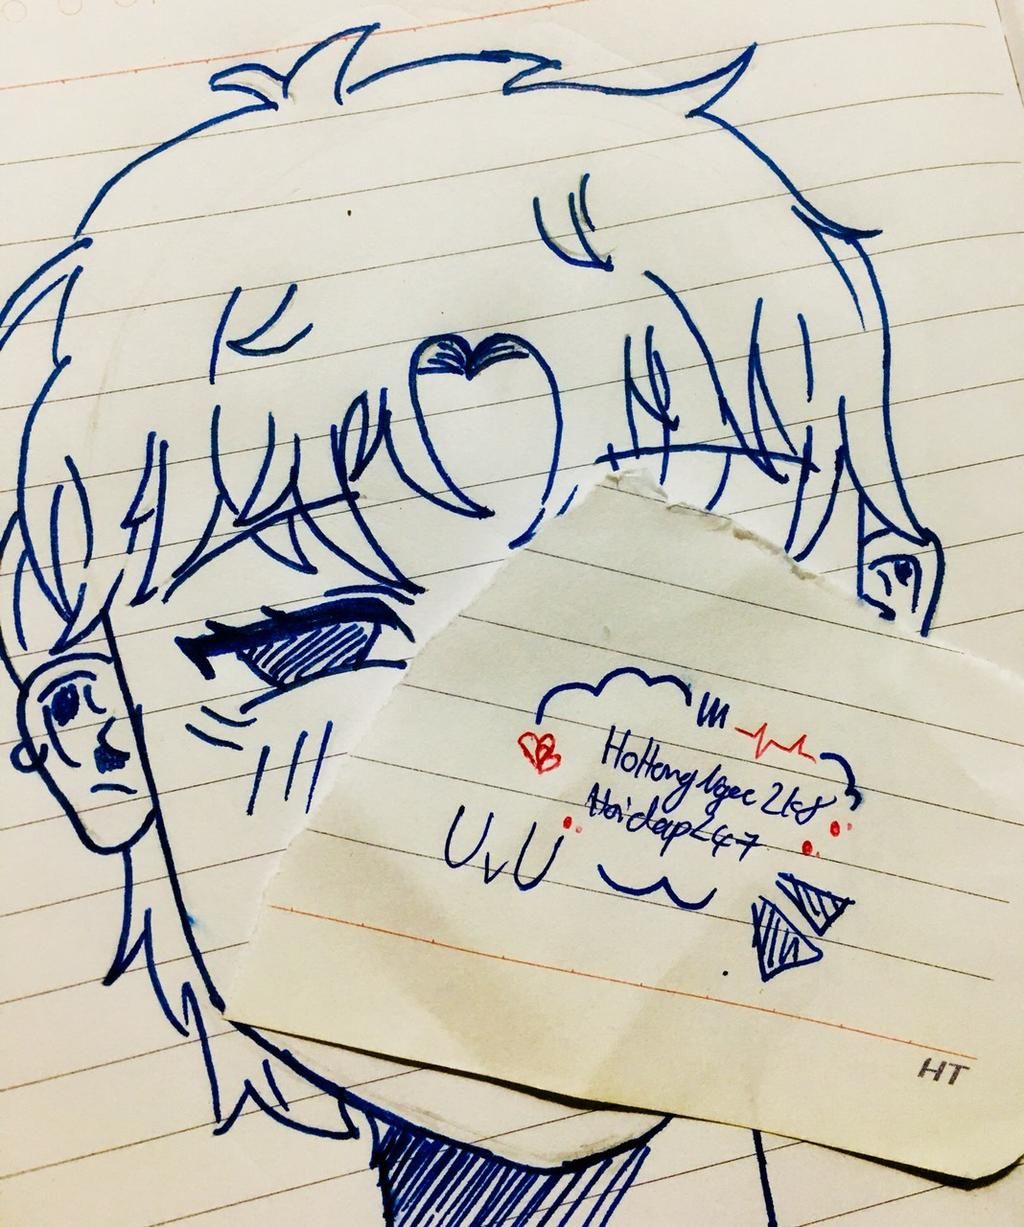 HoHongNgoc2k8
Hoidap247
UvU
HT